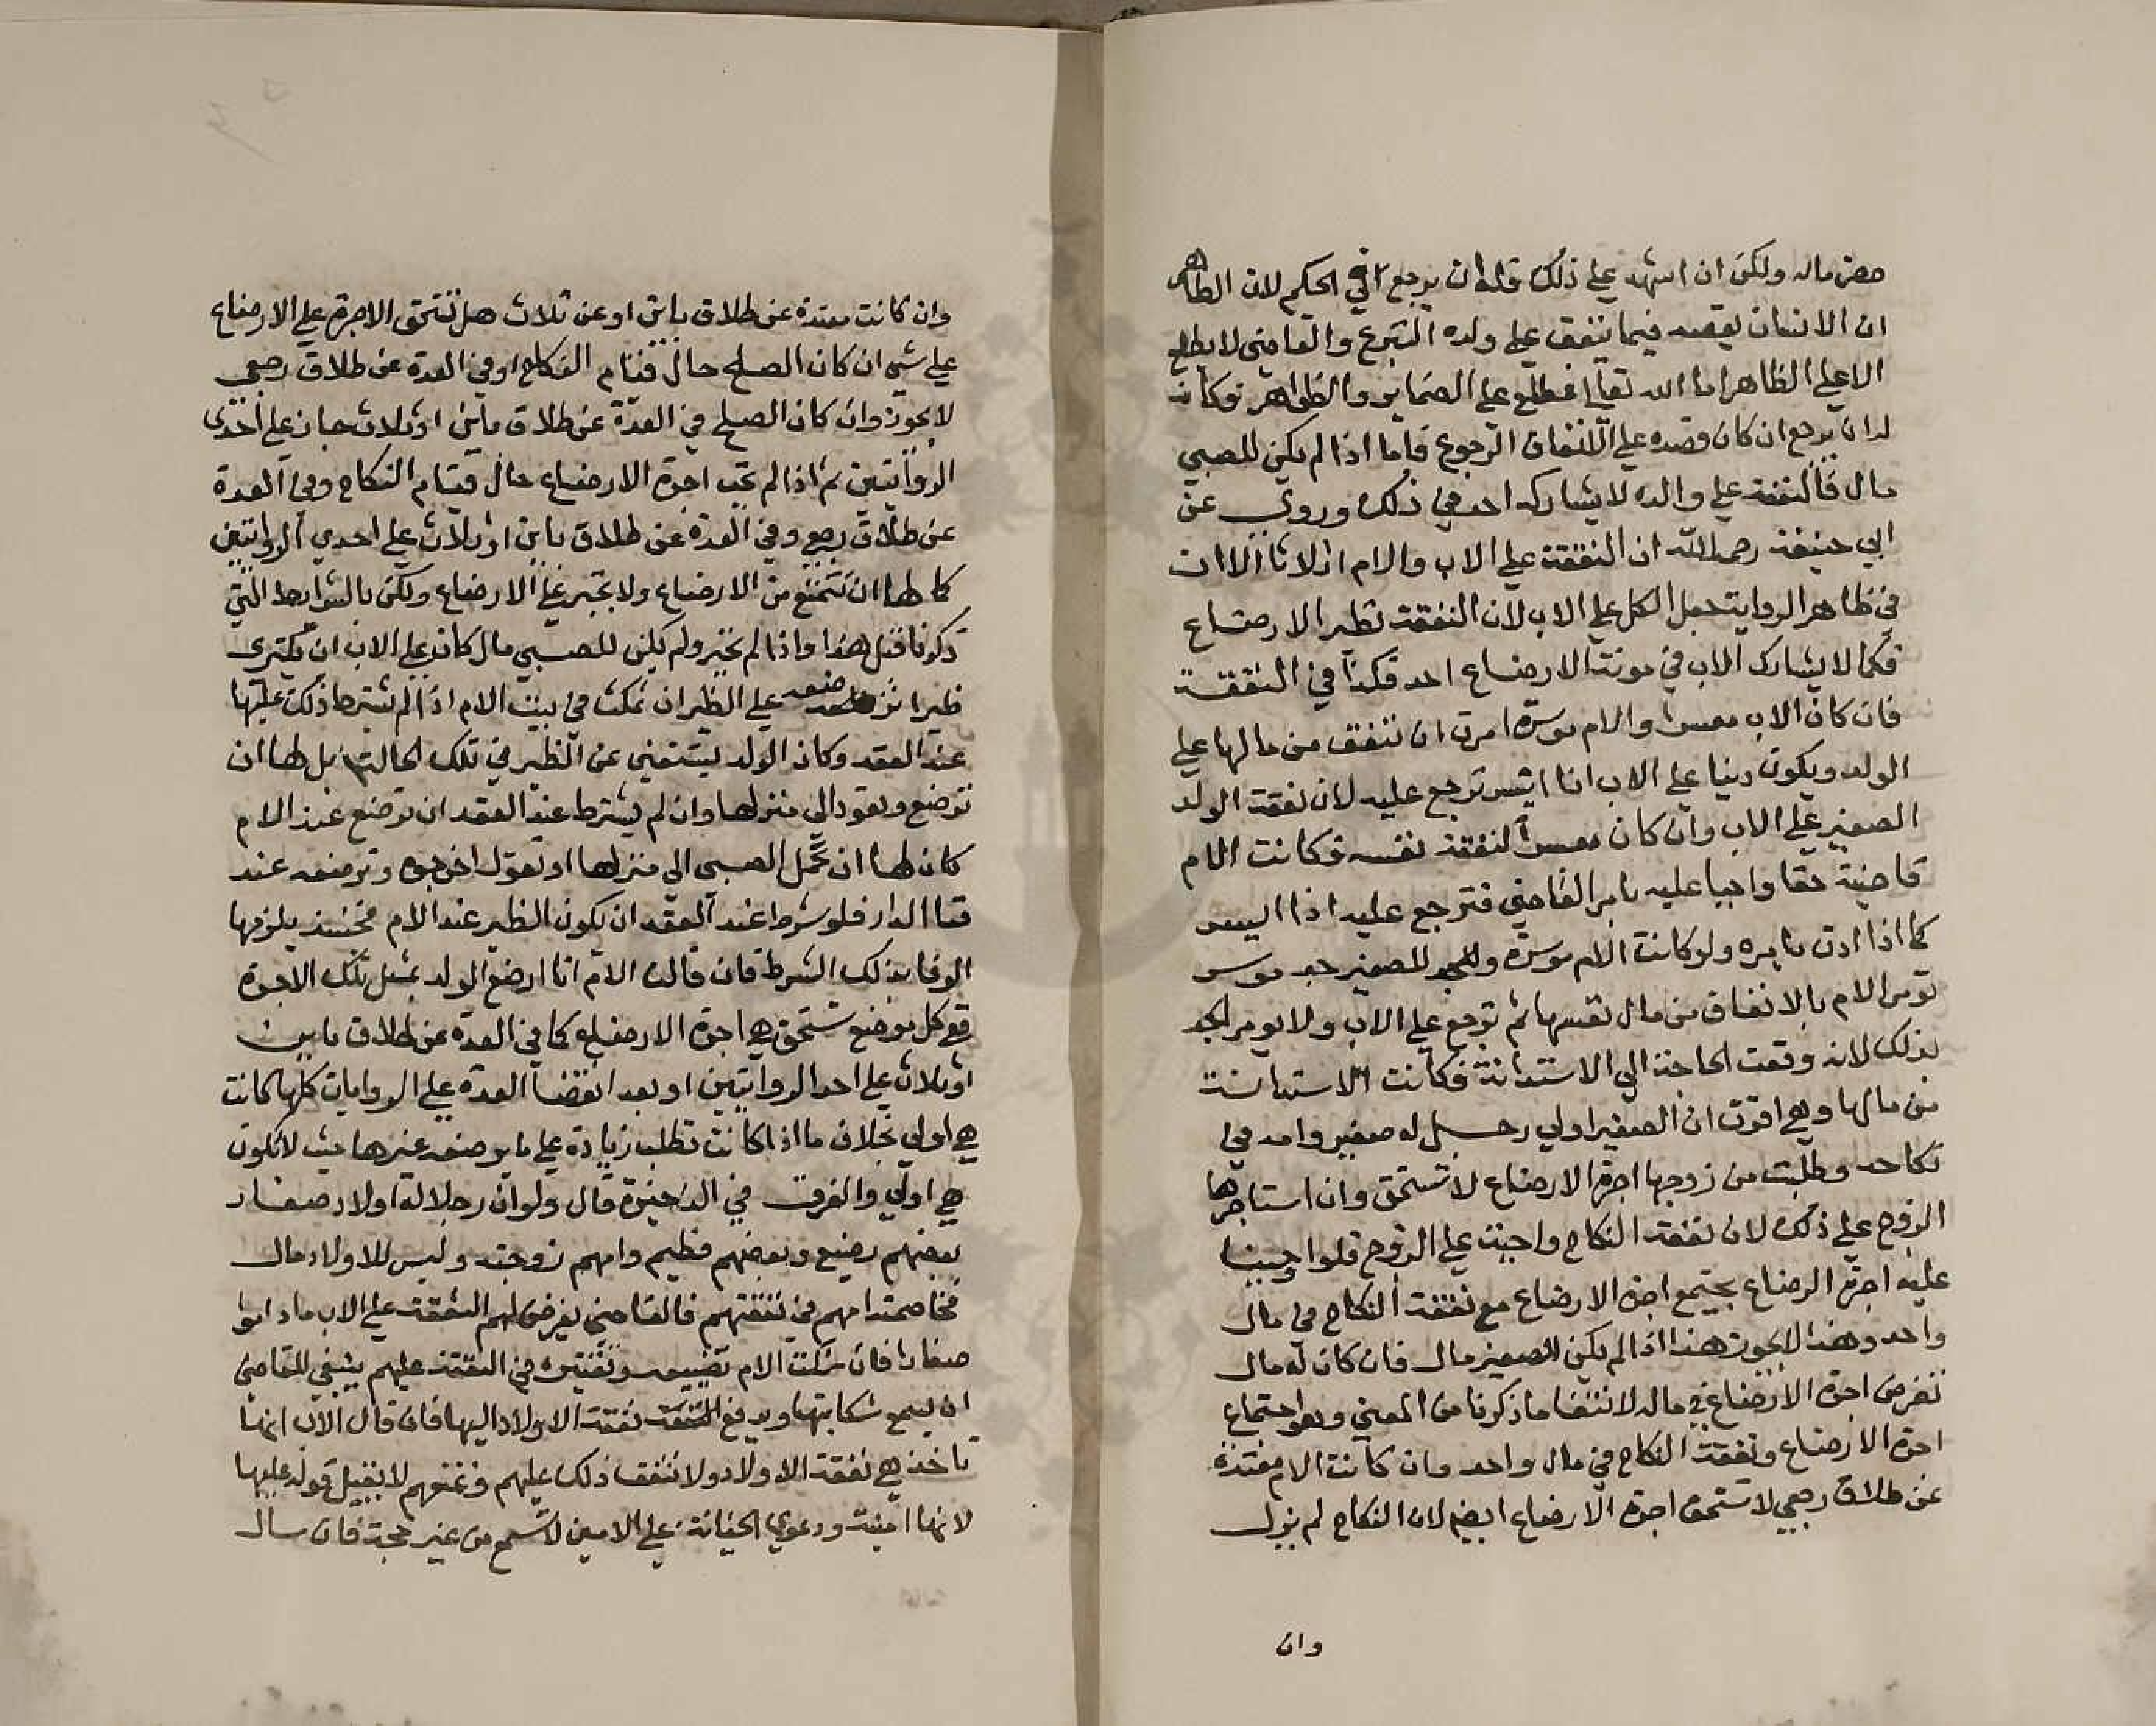 حضر ماله ولكن ان اشهد على ذلك فله ان يرجع في الحكم لان الظاهر
ان الانسان يقصد فيما ينفق على ولده التبرع والقاضي لا يطلع
الا على الظاهر اما الله تعالى فمطلع على الضماير والظواهر فكان
له ان يرجع ان كان قصده على الانفاق الرجوع فاما اذا لم يكن للصبي
مال فالنفقة على والده لا يشاركه احد في ذلك وروى عن
ابي حنيفة رحمه الله ان النفقة على الاب والام اثلاثا الا ان
في ظاهر الرواية جعل الكل على الاب لان النفقة نظير الارضاع
فكما لا يشارك الاب في مونة الارضاع احد فكذا في النفقة
فان كان الاب معسرا والام موسرة امرت ان تنفق من مالها على
الولد ويكون دينا على الاب اذا ايسر ترجع عليه لان نفقة الولد
الصغير على الاب وان كان معسرا كنفقة نفسه فكانت الام
قاضية حقا واجبا عليه بامر القاضي فترجع عليه اذا ايسر
كما اذا ادت بامره ولو كانت الام موسرة وللصغير جد موسر
تومر الام بالانفاق من مال نفسها ثم ترجع على الاب ولا يومر الجد
بذلك لانه وقعت الحاجة الى الاستدانة فكانت الاستدانة
من مالها وهي اقرب ان الصغير اولى رجل له صغير وامه في
نكاحه وطلبت من زوجها اجرة الارضاع لا تستحق وان استاجرها
الزوج على ذلك لان نفقة النكاح واجبة على الزوج فلو اوجبنا
عليه اجرة الرضاع يجتمع اجرة الارضاع مع نفقة النكاح في مال
واحد وهذا لا يجوز هذا اذا لم يكن للصغير مال فان كان له مال
تفرض اجرة الارضاع في ماله لانتفاء ما ذكرنا من المعنى وهو اجتماع
اجرة الارضاع ونفقة النكاح في مال واحد وان كانت الام معتدة
عن طلاق رجعي لا تستحق اجرة الارضاع ايضا لان النكاح لم يزل
وان
وان كانت معتدة عن طلاق باين او عن ثلاث هل تستحق الاجرة على الارضاع
على شي ان كان الصلح حال قيام النكاح او في العدة عن طلاق رجعي
لا يجوز وان كان الصلح في العدة عن طلاق باين او ثلاث جاز على احدى
الروايتين ثم اذا لم تجب اجرة الارضاع حال قيام النكاح وفي العدة
عن طلاق رجعي وفي العدة عن طلاق باين او ثلاث على احدي الروايتين
كان لها ان تمتنع من الارضاع ولا تجبر على الارضاع ولكن بالشرايط التي
ذكرنا قبل هذا واذا لم تجبر ولم يكن للصبي مال كان على الاب ان يكتري
ظيرا ترضعه على الظير ان تمكث في بيت الام اذا لم تشترط ذلك عليها
عند العقد وكان الولد يستغني عن الظير في تلك الحالة بل لها ان
ترضع وتعود الى منزلها وان لم يشترط عند العقد ان ترضع عند الام
كان لها ان تحمل الصبي الى منزلها او تقول اخرجوه وترضعه عند
فنا الدار فلو شرط عند العقد ان تكون الظير عند الام فحينئذ يلزمها
الوفا بذلك الشرط فان قالت الام انا ارضع الولد بمثل تلك الاجرة
ففي كل موضع تستحق هي اجرة الارضاع كما في العدة عن طلاق باين
او ثلاث على احد الروايتين او بعد انقضا العدة على الروايات كلها كانت
هي اولى بخلاف ما اذا كانت تطلب زيادة على ما يرضعه غيرها حيث لا تكون
هي اولى والفرق في الذخيرة قال ولو ان رجلا له اولاد صغار
بعضهم رضيع وبعضهم فطيم وامهم زوجته وليس للاولاد مال
فخاصمته امهم في نفقتهم فالقاضي يفرض لهم النفقة على الاب ما داموا
صغارا فان شكت الام تضييعه وتقتيره في النفقة عليهم ينبغي للقاضي
ان يسمع شكايتها ويدفع نفقة الاولاد اليها فان قال الاب انها
تاخذ هي نفقة الاولاد ولا تنفق ذلك عليهم لا يقبل قوله عليها
لانها امينة ودعوى الخيانة على الامين لا تسمع من غير حجة فان سال